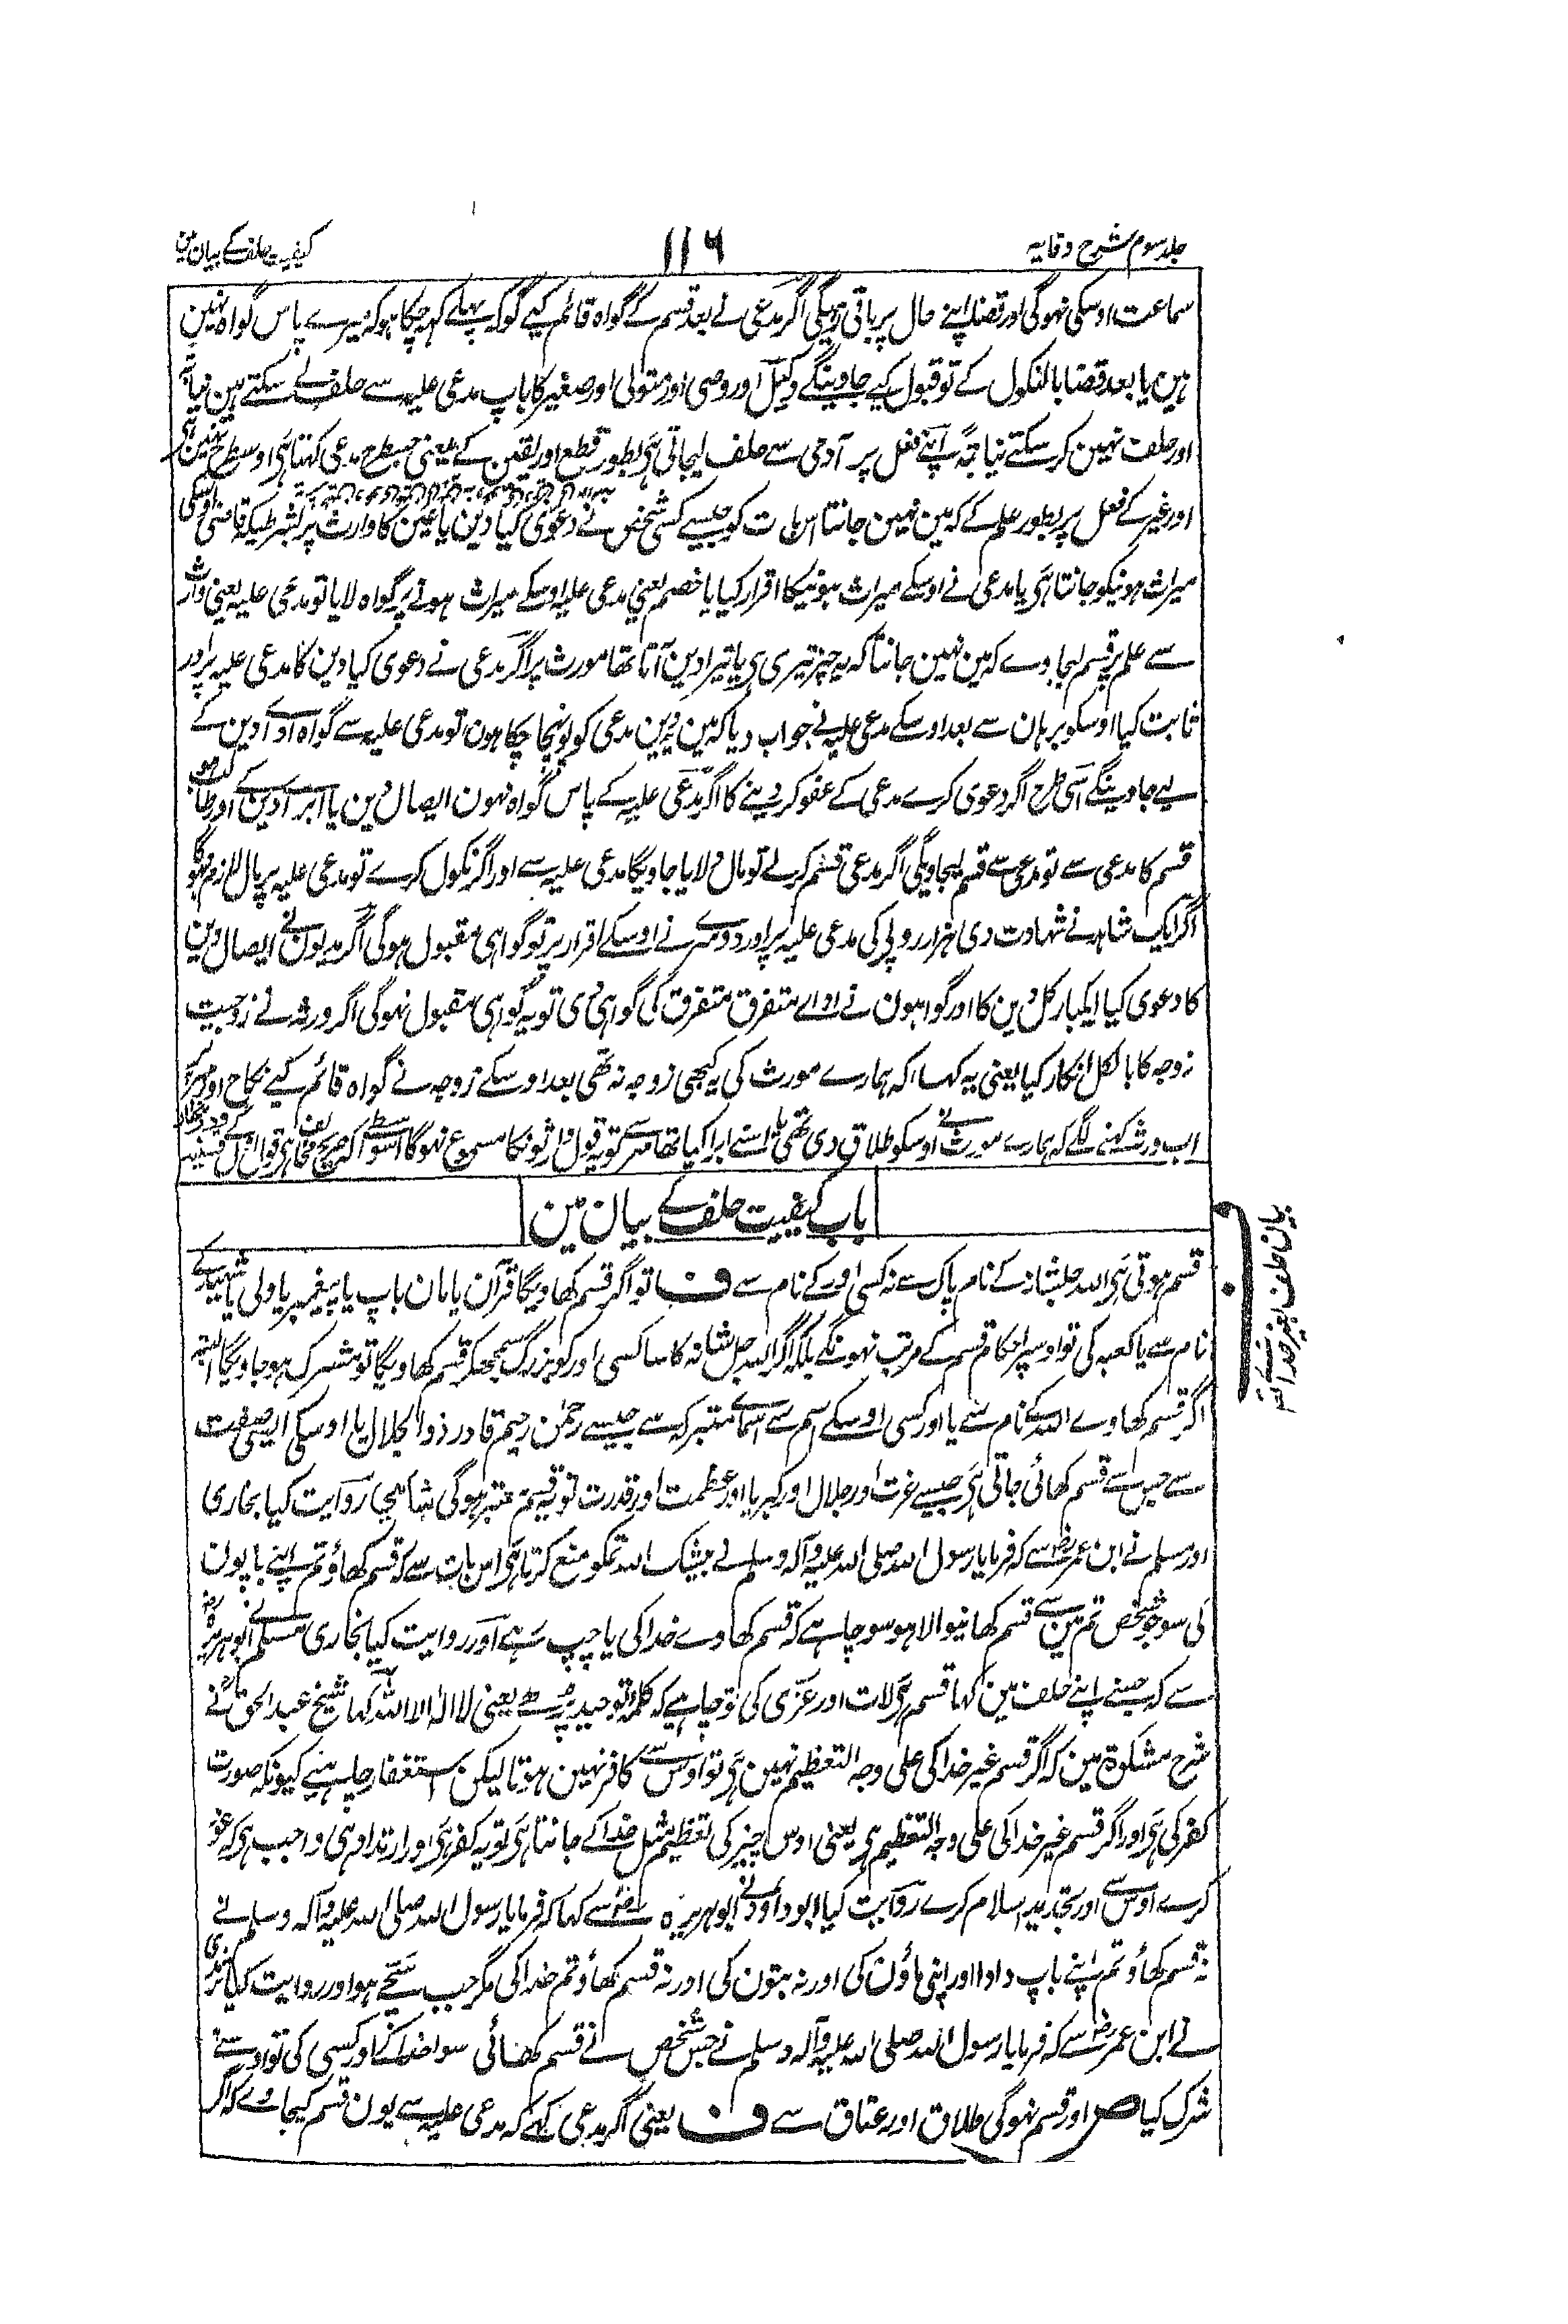 جلد سوم شرح وقایہ
۱۱۶
کیفیت حلف کے بیان مین
سماعت اوسکی نہوگی اور قضا اپنے حال پر باقی رہیگی اگر مدعی نے بعد قسم کے گواہ قائم کیے گو کہ پہلے کہہ چکا ہو کہ میرے پاس گواہ نہین
ہین یا بعد قضا بالنکول کے تو قبول کیے جاوینگے وکیل اور وصی اور متولی اور صغیر کا باپ مدعی علیہ سے حلف لے سکتے ہین نیابۃً
اور حلف نہین کر سکتے نیابۃً اپنے فعل پر آدمی سے حلف لیجاتی ہی بطور قطع اور یقین کے یعنی جسطرح مدعی کہتا ہی اوسطرح نہین ہی
اور غیر کے فعل پر بطور علم کے کہ مین نہین جانتا اس بات کو جیسے کسی شخص نے دعوی کیا دین یا عین کا وارث پر بشرطیکہ قاضی اوسکی
میراث ہونیکو جانتا ہی یا مدعی نے اوسکے میراث ہونیکا اقرار کیا یا خصم یعنی مدعی علیہ اوسکے میراث ہونے پر گواہ لایا تو مدعی علیہ یعنی وارث
سے علم پر قسم لیجاوے کہ مین نہین جانتا کہ یہ چیز تیری ہی یا تیرا دین آتا تھا مورث پر اگر مدعی نے دعوی کیا دین کا مدعی علیہ پر اور
ثابت کیا اوسکو برہان سے بعد اوسکے مدعی علیہ نے جواب دیا کہ مین یہ دین مدعی کو پونہچا چکا ہون تو مدعی علیہ سے گواہ اداے دین کے
لیے جاوینگے اسی طرح اگر دعوی کرے مدعی کے عفو کر دینے کا اگر مدعی علیہ کے پاس گواہ نہون ایصال دین یا ابراے دین کے اور طالب ہو
قسم کا مدعی سے تو مدعی سے قسم لیجاویگی اگر مدعی قسم کرلے تو مال دلایا جاویگا مدعی علیہ سے اور اگر نکول کرے تو مدعی علیہ پر مال لازم نہوگا
اگر ایک شاہد نے شہادت دی ہزار روپے کی مدعی علیہ پر اور دوسرے نے اوسکے اقرار پر تو گواہی مقبول ہوگی اگر مدیون نے ایصال دین
کا دعوی کیا ایکبار کل دین کا اور گواہون نے اداے متفرق متفرق کی گواہی دی تو یہ گواہی مقبول نہوگی اگر ورثہ نے زوجیت
زوجہ کا بالکل انکار کیا یعنی یہ کہا کہ ہمارے مورث کی یہ کبھی زوجہ نہ تھی بعد اوسکے زوجہ نے گواہ قائم کیے نکاح اور مہر پر
اب ورثہ کہنے لگے کہ ہمارے مورث نے اوسکو طلاق دی تھی یا اسنے ابرا کیا تھا مہر سے تو یہ قول وارثونکا مسموع نہوگا اسواسطے کہ صریح مخالف ہی قول اول کے
باب کیفیت حلف کے بیان مین
قسم ہوتی ہی اللہ جلشانہ کے نام پاک سے نہ کسی اور کے نام سے ف تو اگر قسم کھاویگا قرآن یا مان باپ یا پیغمبر یا ولی یا شہید کے
نام سے یا کعبہ کی تو اوسپر احکام قسم کے مرتب نہونگے بلکہ اگر اللہ جل شانہ کا سا کسی اور کو بزرگ سمجھکر قسم کھاویگا تو مشرک ہو جاویگا البتہ
اگر قسم کھاوے اللہ کے نام سے یا اور کسی اوسکے اسم سے اسماے متبرکہ سے جیسے رحمٰن رحیم قادر ذوالجلال یا اوسکی ایسی صفت
سے جس سے قسم کھائی جاتی ہی جیسے عزت اور جلال اور کبریا اور عظمت اور قدرت تو یہ قسم معتبر ہوگی شامی روایت کیا بخاری
اور مسلم نے ابن عمر رضؓ سے کہ فرمایا رسول اللہ صلی اللہ علیہ وآلہ وسلم نے بیشک اللہ تمکو منع کرتا ہی اس بات سے کہ قسم کھاؤ تم اپنے باپون
کی سو جو شخص تم مین سے قسم کھانیوالا ہو سو چاہے کہ قسم کھاوے خدا کی یا چپ رہے اور روایت کیا بخاری مسلم نے ابوہریرہ رضؓ
سے کہ جسنے اپنے حلف مین کہا قسم ہی لات اور عزّی کی تو چاہیے کہ کلمہ توحید پڑھے یعنی لا الہ الا اللہ کہا شیخ عبد الحق نے
شرح مشکوۃ مین کہ اگر قسم غیر خدا کی علی وجہ التعظیم نہین ہی تو اوس سے کافر نہین ہوتا لیکن استغفار چاہیے کیونکہ صورت
کفر کی ہی اور اگر قسم غیر خدا کی علی وجہ التعظیم ہی یعنی اوس چیز کی تعظیم مثل خدا کے جانتا ہی تو یہ کفر ہی اور ارتداد ہی واجب ہی کہ عود
کرے اوس سے اور تجدید اسلام کرے روایت کیا ابو داود نے ابوہریرہ رضؓ سے کہا کہ فرمایا رسول اللہ صلی اللہ علیہ وآلہ وسلم نے
نہ قسم کھاؤ تم اپنے باپ دادا اور اپنی ماؤن کی اور نہ بتون کی اور نہ قسم کھاؤ تم خدا کی مگر جب سچے ہو اور روایت کیا ترمذی
نے ابن عمر رضؓ سے کہ فرمایا رسول اللہ صلی اللہ علیہ وآلہ وسلم نے جس شخص نے قسم کھائی سوا خدا کے اور کسی کی تو اوسنے
شرک کیا ص اور قسم نہوگی طلاق اور عتاق سے ف یعنی اگر مدعی کہے کہ مدعی علیہ سے یون قسم لیجاوے کہ اگر
بیان حلف بغیر خدا